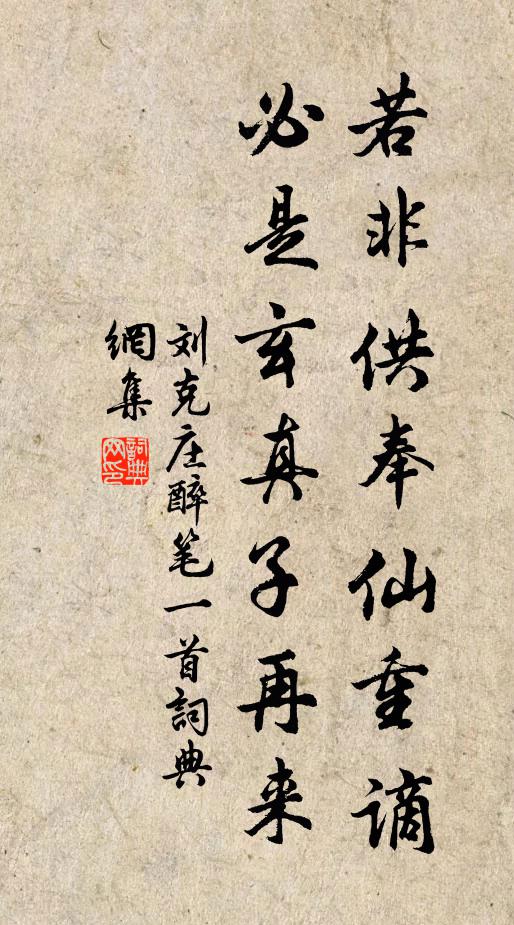 若非供奉仙重谪
必是玄真子再来
刘克庄醉笔一首詞典
網集
詞典
网印